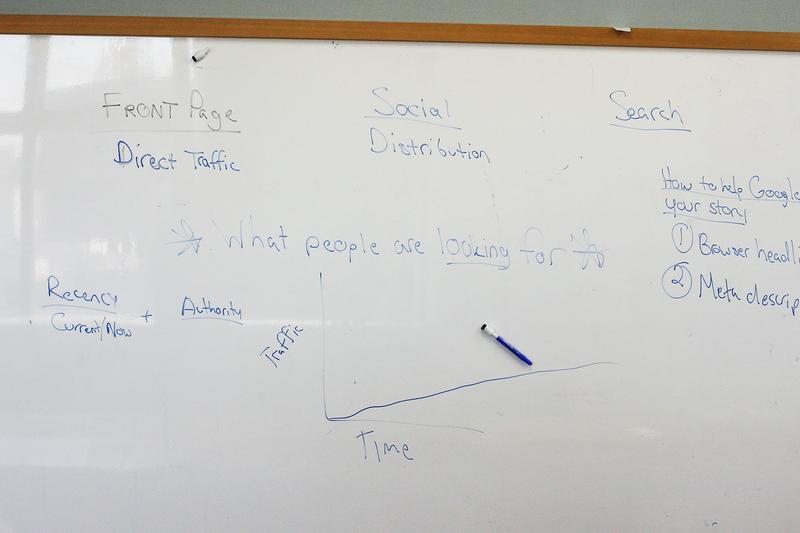 FRONT Page
Direct Traffic
Social
Distribution
Search
How to help Google
your story
① Browser headli
② Meta descrip
What people are looking for
Recency
Current/Now
+
Authority
Traffic
Time